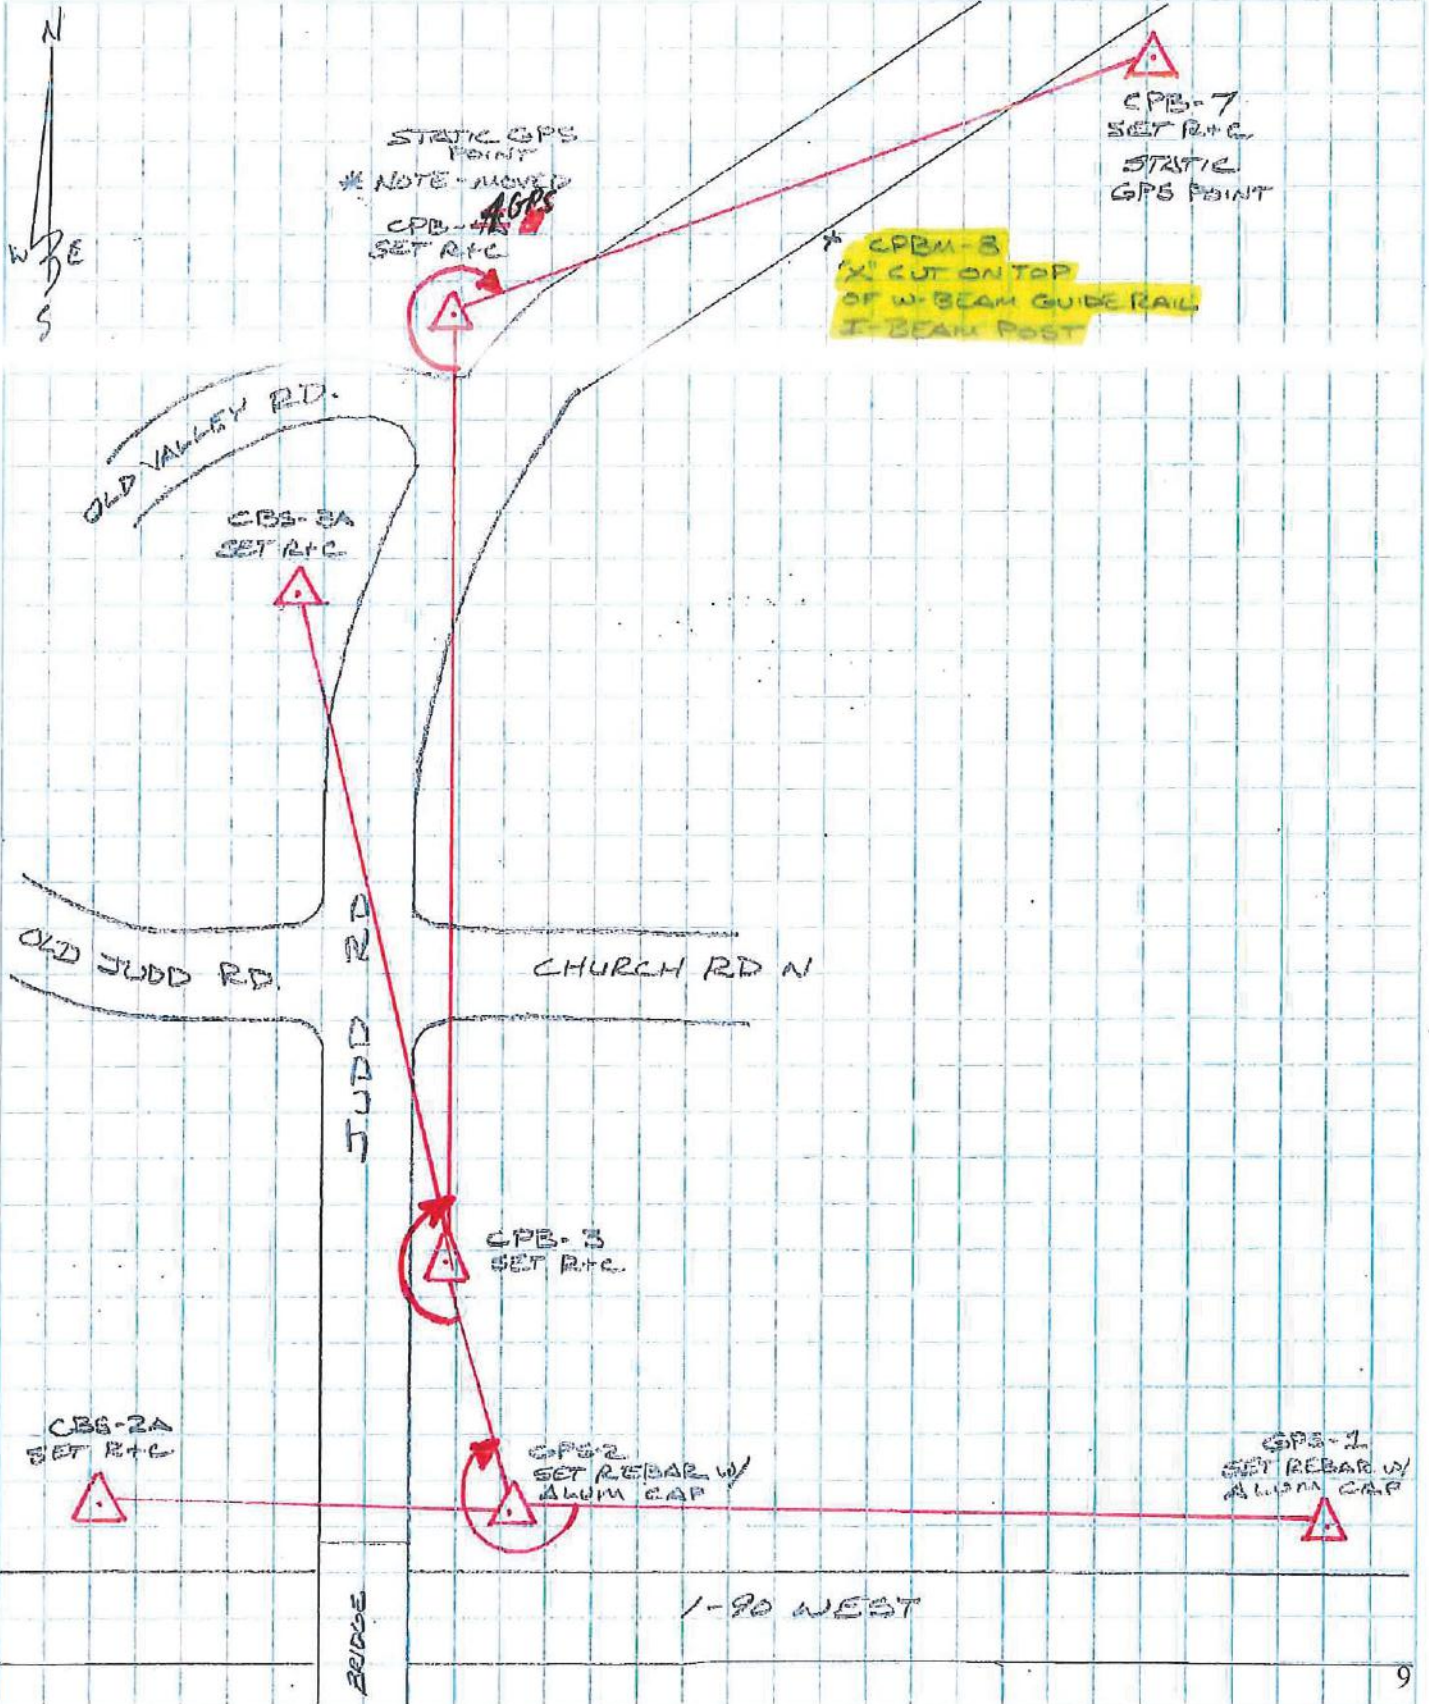 N
W E
S
STATIC GPS
POINT
* NOTE - MOVED
4GPS
CPB-
SET R+C
CPB-7
SET R+C
STATIC
GPS POINT
* CPBM-8
"X" CUT ON TOP
OF W-BEAM GUIDE RAIL
I-BEAM POST
OLD VALLEY RD.
CBS-3A
SET R+C
OLD JUDD RD.
JUDD RD
CHURCH RD N
CPB-3
SET R+C
CBS-2A
SET R+C
GPS-2
SET REBAR W/
ALUM CAP
GPS-1
SET REBAR W/
ALUM CAP
I-90 WEST
BRIDGE
9